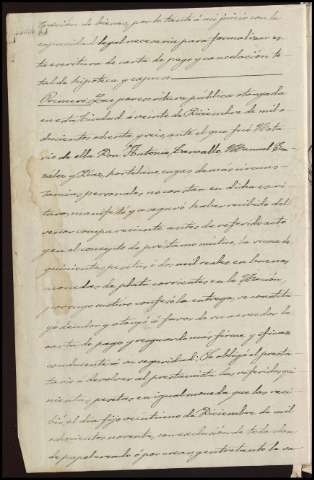 de bienes, por lo tanto á mi juicio con la
capacidad legal necesaria para formalizar es-
ta escritura de carta de pago y cancelación to-
tal de hipoteca y expone
Primero. Que por escritura pública otorgada
en esta Ciudad á veinte de Diciembre de mil o-
chocientos ochenta y seis, ante el que fué Nota-
rio de ella Don Antonio Manuel
y Rios, hortelano, cuyas demas circuns-
tancias personales, no constan en dicha escri-
tura, manifestó y aseguró haber recibido del
señor compareciente antes de referido acto
y en el concepto de préstamo mutuo, la suma de
quinientas pesetas ó dos mil reales en buenas
monedas de plata corrientes en la Nación,
por cuyo motivo confesó la entrega, se constituyó
deudor y otorgó á favor de su acreedor la
carta de pago y resguardo mas firme y eficaz
conducente á su seguridad: Se obligó el presta-
tario á devolver al prestamista las referidas qui-
nientas pesetas, en igual moneda que las reci-
bió, el dia fijo veintiuno de Diciembre de mil
ochocientos noventa, con exclusión de toda clase
de papel creado ó por crear, y entretanto la sa-